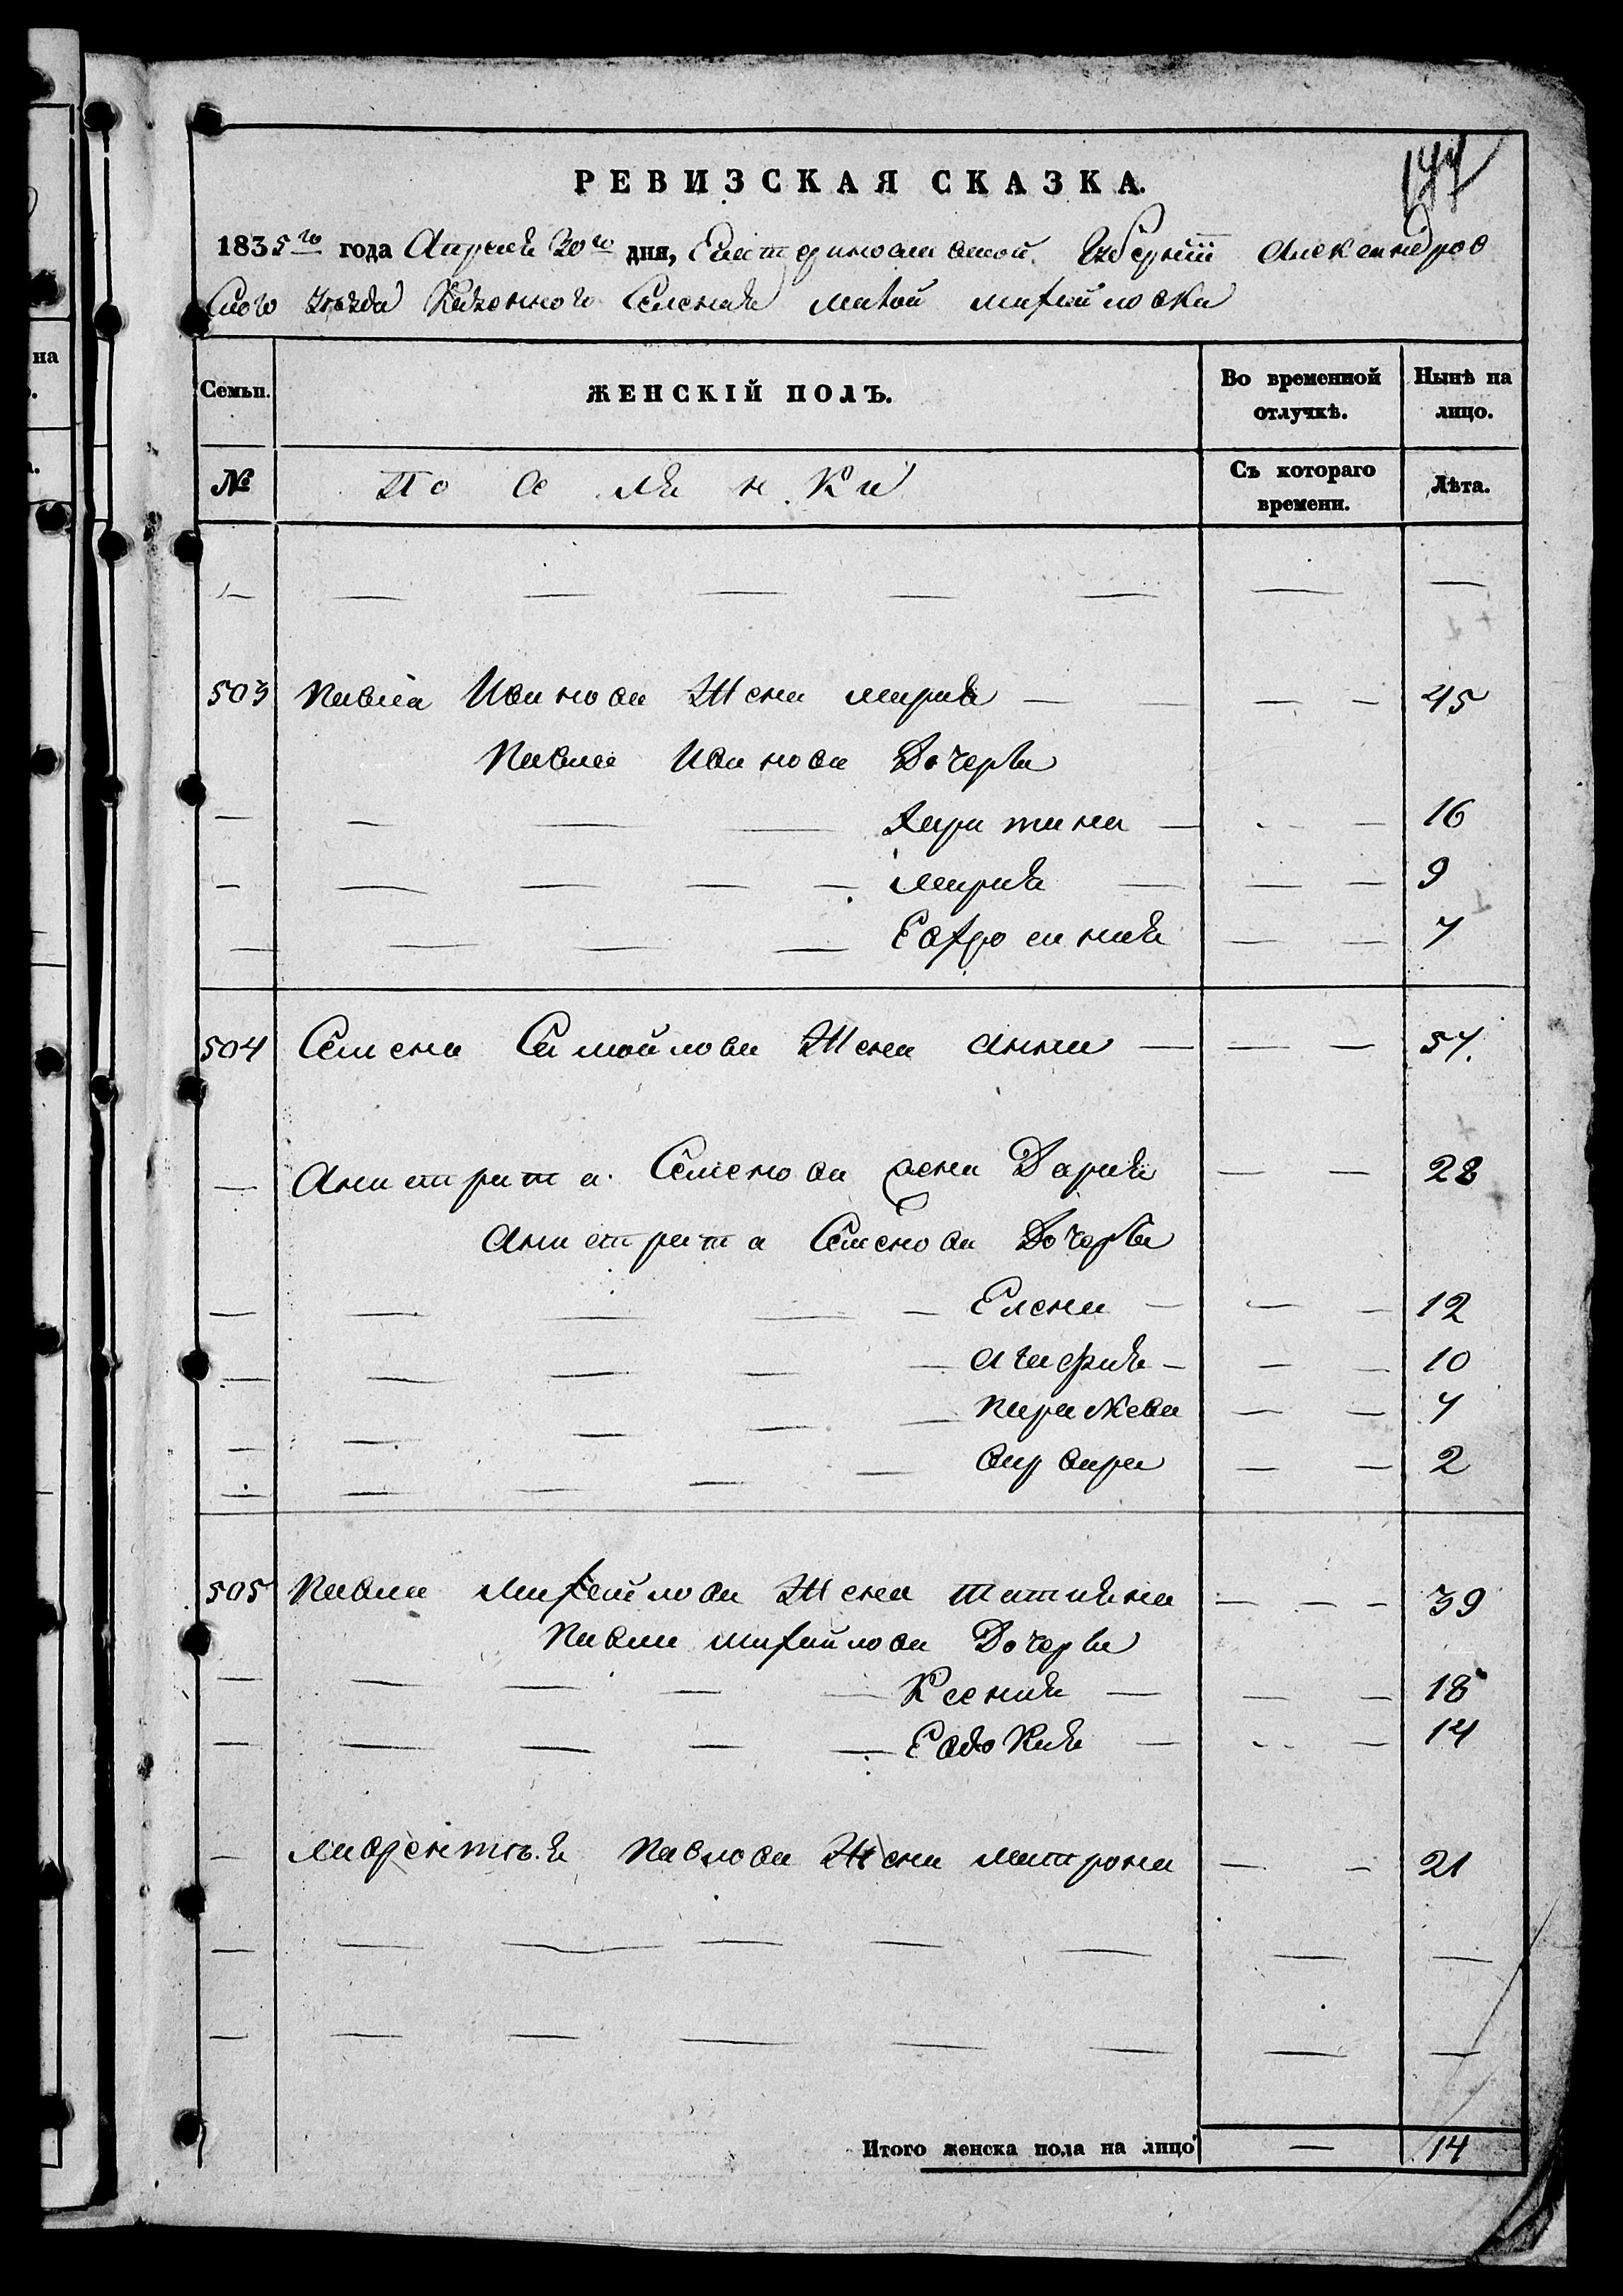 147
РЕВИЗСКАЯ СКАЗКА.
1835го года Апреля 30го дня, Екатеринославской Губерніи Александров
скаго уѣзда Казеннаго Селенія малой михайловки
Семьи. ЖЕНСКІЙ ПОЛЪ. Во временной отлучкѣ. Нынѣ на лицо.
№ Поселянки Съ котораго времени. Лѣта.
— — — — — — — —
503 Павла Иванова Жена мария — — — — 45
Павла Иванова Дочерьи
— — — — Харитина — — — 16
— — — — — — мария — — — 9
— — — — Евфросиния — — 7
504 Семена Самойлова Жена анна — — — 57.
— Анистрата Семенова жена Дария — — 28
Анистрата Семенова Дочерьи
— — — — — Елена — — — 12
— — — — — агафия — — — 10
— — — — — параскева — — 7
— — — — — варвара — — 2
505 Павла михайлова Жена татияна — — — 39
Павла михайлова Дочерьи
— — — — — Ксения — — — 18
— — — — — Евдокия — — — 14
— лаврентъя павлова Жена матрона — — 21
— — — — — — — —
— — — — — — — —
Итого женска пола на лицо — 14
на